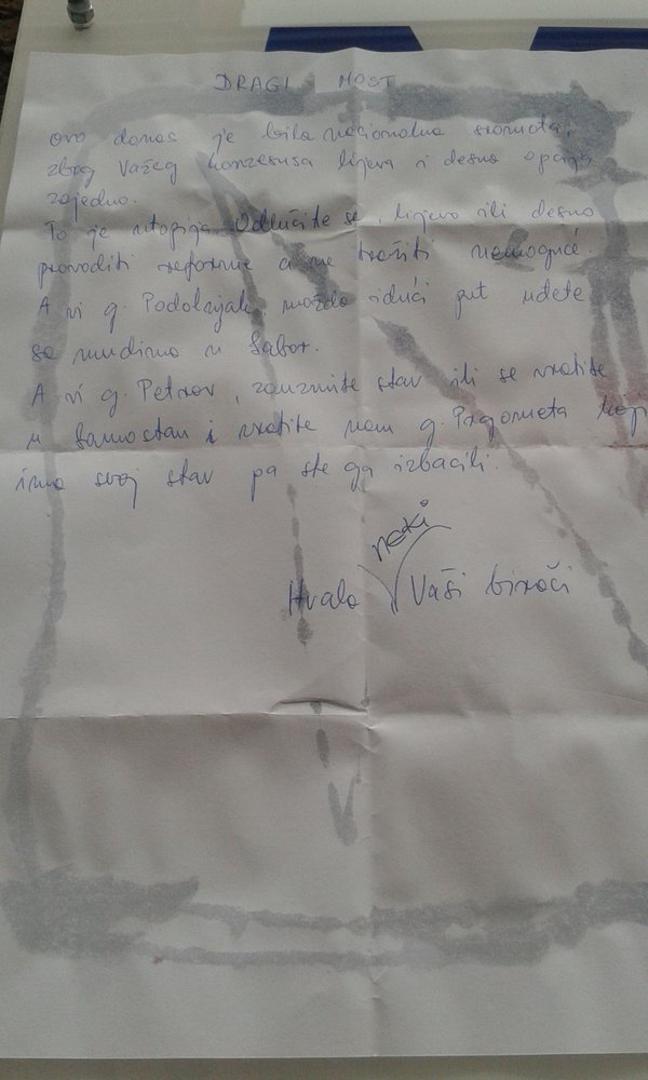 DRAGI MOST
ovo danas je bila nacionalna sramota,
zbog Vašeg konzesusa lijeva i desna opcija
zajedno.
To je utopija. Odlučite se, lijevo ili desno
provoditi reforme a ne tražiti nemoguće.
A vi g. Podolnjak, možda idući put uđete
sa mudima u Sabor.
A vi g. Petrov, zauzmite stav ili se vratite
u samostan i vratite nam g. Prgometa koji
ima svoj stav pa ste ga izbacili.
neki
Hvala Vaši birači